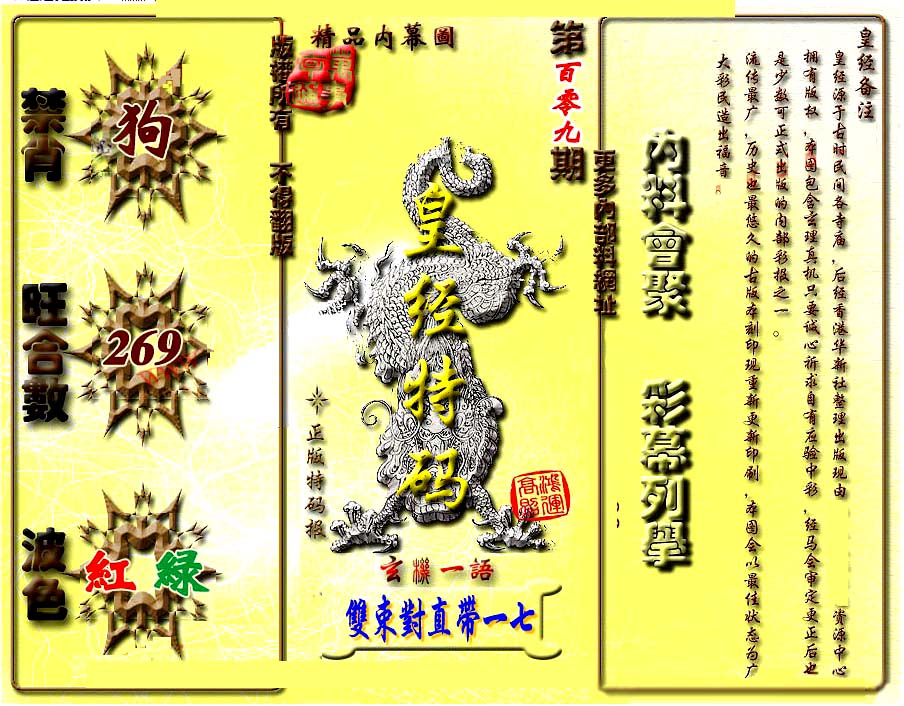 皇经备注
皇经源于古时民间各寺庙,后经香港华新社整理出版现由 资源中心
拥有版权,本图包含玄理真机只要诚心祈求自有应验中彩,经马会审定更正后也
是少数可正式出版的内部彩报之一。
流传最广,历史也最悠久的古版本刻印现重新更新印刷,本图会以最佳状态为广
大彩民造出福音
内料會聚
彩幕列舉
更多內部料網址
第百零九期
精品内幕圖
版權所有 不得翻版
皇经特码
正版特码报
鴻運高照
玄機一語
雙東對直帶一七
禁肖
狗
旺合數
269
波色
紅 綠